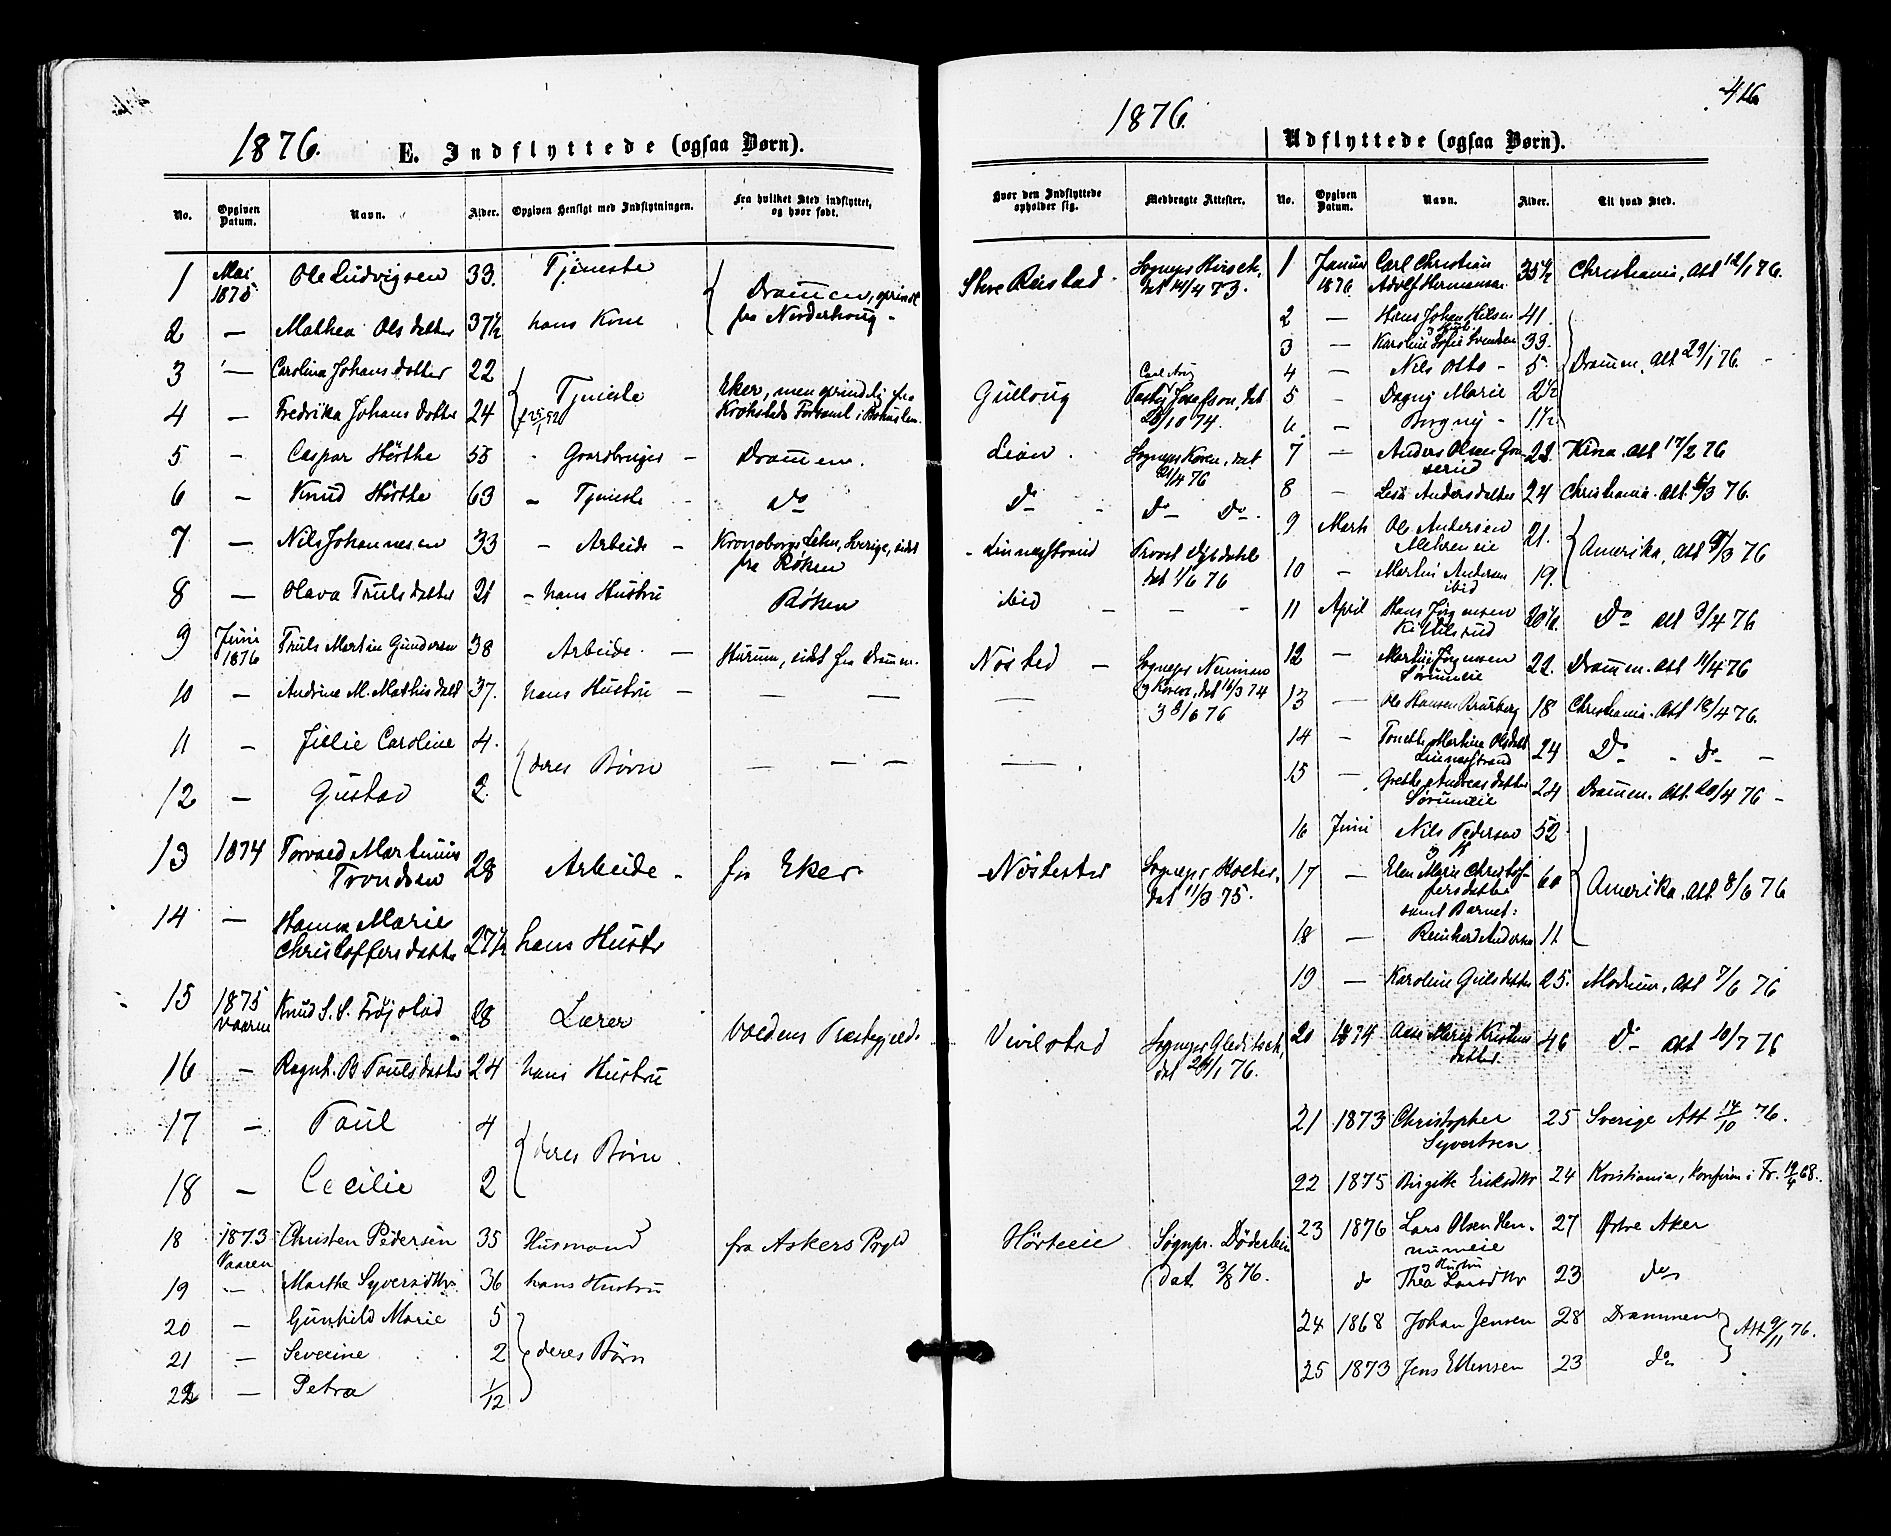 416
1876. E. Indflyttede (ogsaa Børn).
No. Opgiven Datum. Navn. Alder. Opgiven Hensigt med Indflytningen. Fra hvilket Sted indflyttet, og hvor født.
1 Mai 1875 Ole Ludvigsen 33. Tjeneste Drammen, oprindl fra Norderhoug
2 — Mathea Olsdatter 37½ hans Kone
3 — Carolina Johansdotter 22
4 — Fredrika Johansdotter 24 Tjeneste Eker, men oprindelig fra
5 - Caspar Hörthe 55 - Gaardbruger - Drammen.
6 - Knud Hörthe 63 - Tjeneste - Do
7 — Nils Johannesen 33 - Arbeide - Kronoborgs Lehn, Sverige, sidst fra Røken
8 — Olava Trulsdatter 21 - hans Hustru Røken
9 Juni 1876 Truls Martin Gundersen 38 Arbeide - Hurum, sidst fra Drammen.
10 - Andrine M. Mathisdatt 37. hans Hustru - — —
11 - Julie Caroline 4.
12 — Gustav 2. deres Børn — — —
13 1874 Torvald Martinius Trondsen 28 Arbeide - fra Eker
14 — Hanna Marie Christoffersdatter 27½ hans Hustr
15 1875 Vaaren Knud S. S. Frøjstad 28 Lærer Valdens Præstegjeld.
16 - Ragnh. B Paulsdatter 24 hans Hustru
17 - Paul 4
18 — Cecilie 2 deres Børn
18 1873 Vaaren Christen Pedersen 35 Husmand fra Askers Prgld
19 — Marthe Syversdtr 36 hans Hustru
20 — Gunhild Marie 5
21 — Severine 2 deres Børn
22 — Petra 1/12
1876.
Hvor den Indflyttede opholder sig. Medbragte Attester.
Store Reistad. Sognepr Hirsch, dat 14/4 73.
Gulloug Josefsson, dat 28/10 74.
Lian. Sognepr Koren, dat 21/4 76
Do - Do Do
Linnesstrand Provst dat 1/6 76
ibid — — -
Nøsted — Sognepr Neuman og Koren, dat 16/3 74 & 8/6 76
Nøstester Sognepr Holter, dat 11/3 75.
Vivelstad Sognepr Gleditsch, dat 28/1 76.
Hørteeie Sognpr. Döderlein dat. 3/8 76.
Udflyttede (ogsaa Børn).
No. Opgiven Datum. Navn. Alder. Til hvad Sted.
1 Januar 1876. Carl Christian Adolf Hermansen 35½ Christiania, Att 12/1 76.
2 — Hans Johan Nilsen 41.
3 — Karoline Sofie Svendsen 33.
4 — Nils Otto - 5 Drammen, Att 29/1 76.
5 - Dagny Marie 2½
6 - Borgny - 1½
7 - Anders Olsen 22. Kina. Att 17/2 76
8 — Lesa Andersdatter 24 Christiania. Att. 6/3 76.
9 Marts Ole Andersen 21.
10 - Martin Andersen ibid 19. Amerika, Att 9/3 76
11 April Hans Jørgensen Kittilsrud 20½ Do Att 3/4 76
12 — Martin Jørgensen Sørumeie 22. Drammen. Att 11/4 76
13 — Ole Hansen Brurberg 18 Christiania. Att 18/4 76.
14 - Tonette Martine Olsdatt Linnesstrand 24 Do - Do -
15 — Grethe Andreasdatter Sørumeie 24 Drammen. Att. 20/4 76 -
16 Juni Nils Pedersen 52
17 — Elen Marie Christoffersdatter 60 Amerika. Att 8/6 76
samt Barnet:
18 — Reinhard Anders 11
19 — Karoline Gulsdatter 25. Modum. Att 7/6 76
20 1874 Ane Marie Kristensdatter 46 Do Att 10/7 76
21 1873 Christopher Syvertsen 25 Sverige Att 14/10 76.
22 1875 Birgitte Eriksdtr 24 Kristiania, konfirm i Fr. 68.
23 1876 Lars Olsen Hennumeie 27 Østre Aker
do og Hustru Thea Larsdtr 23 do
24 1868 Johan Jensen 28 Drammen
25 1873 Jens Ellensen 23 do Att 9/11 76.